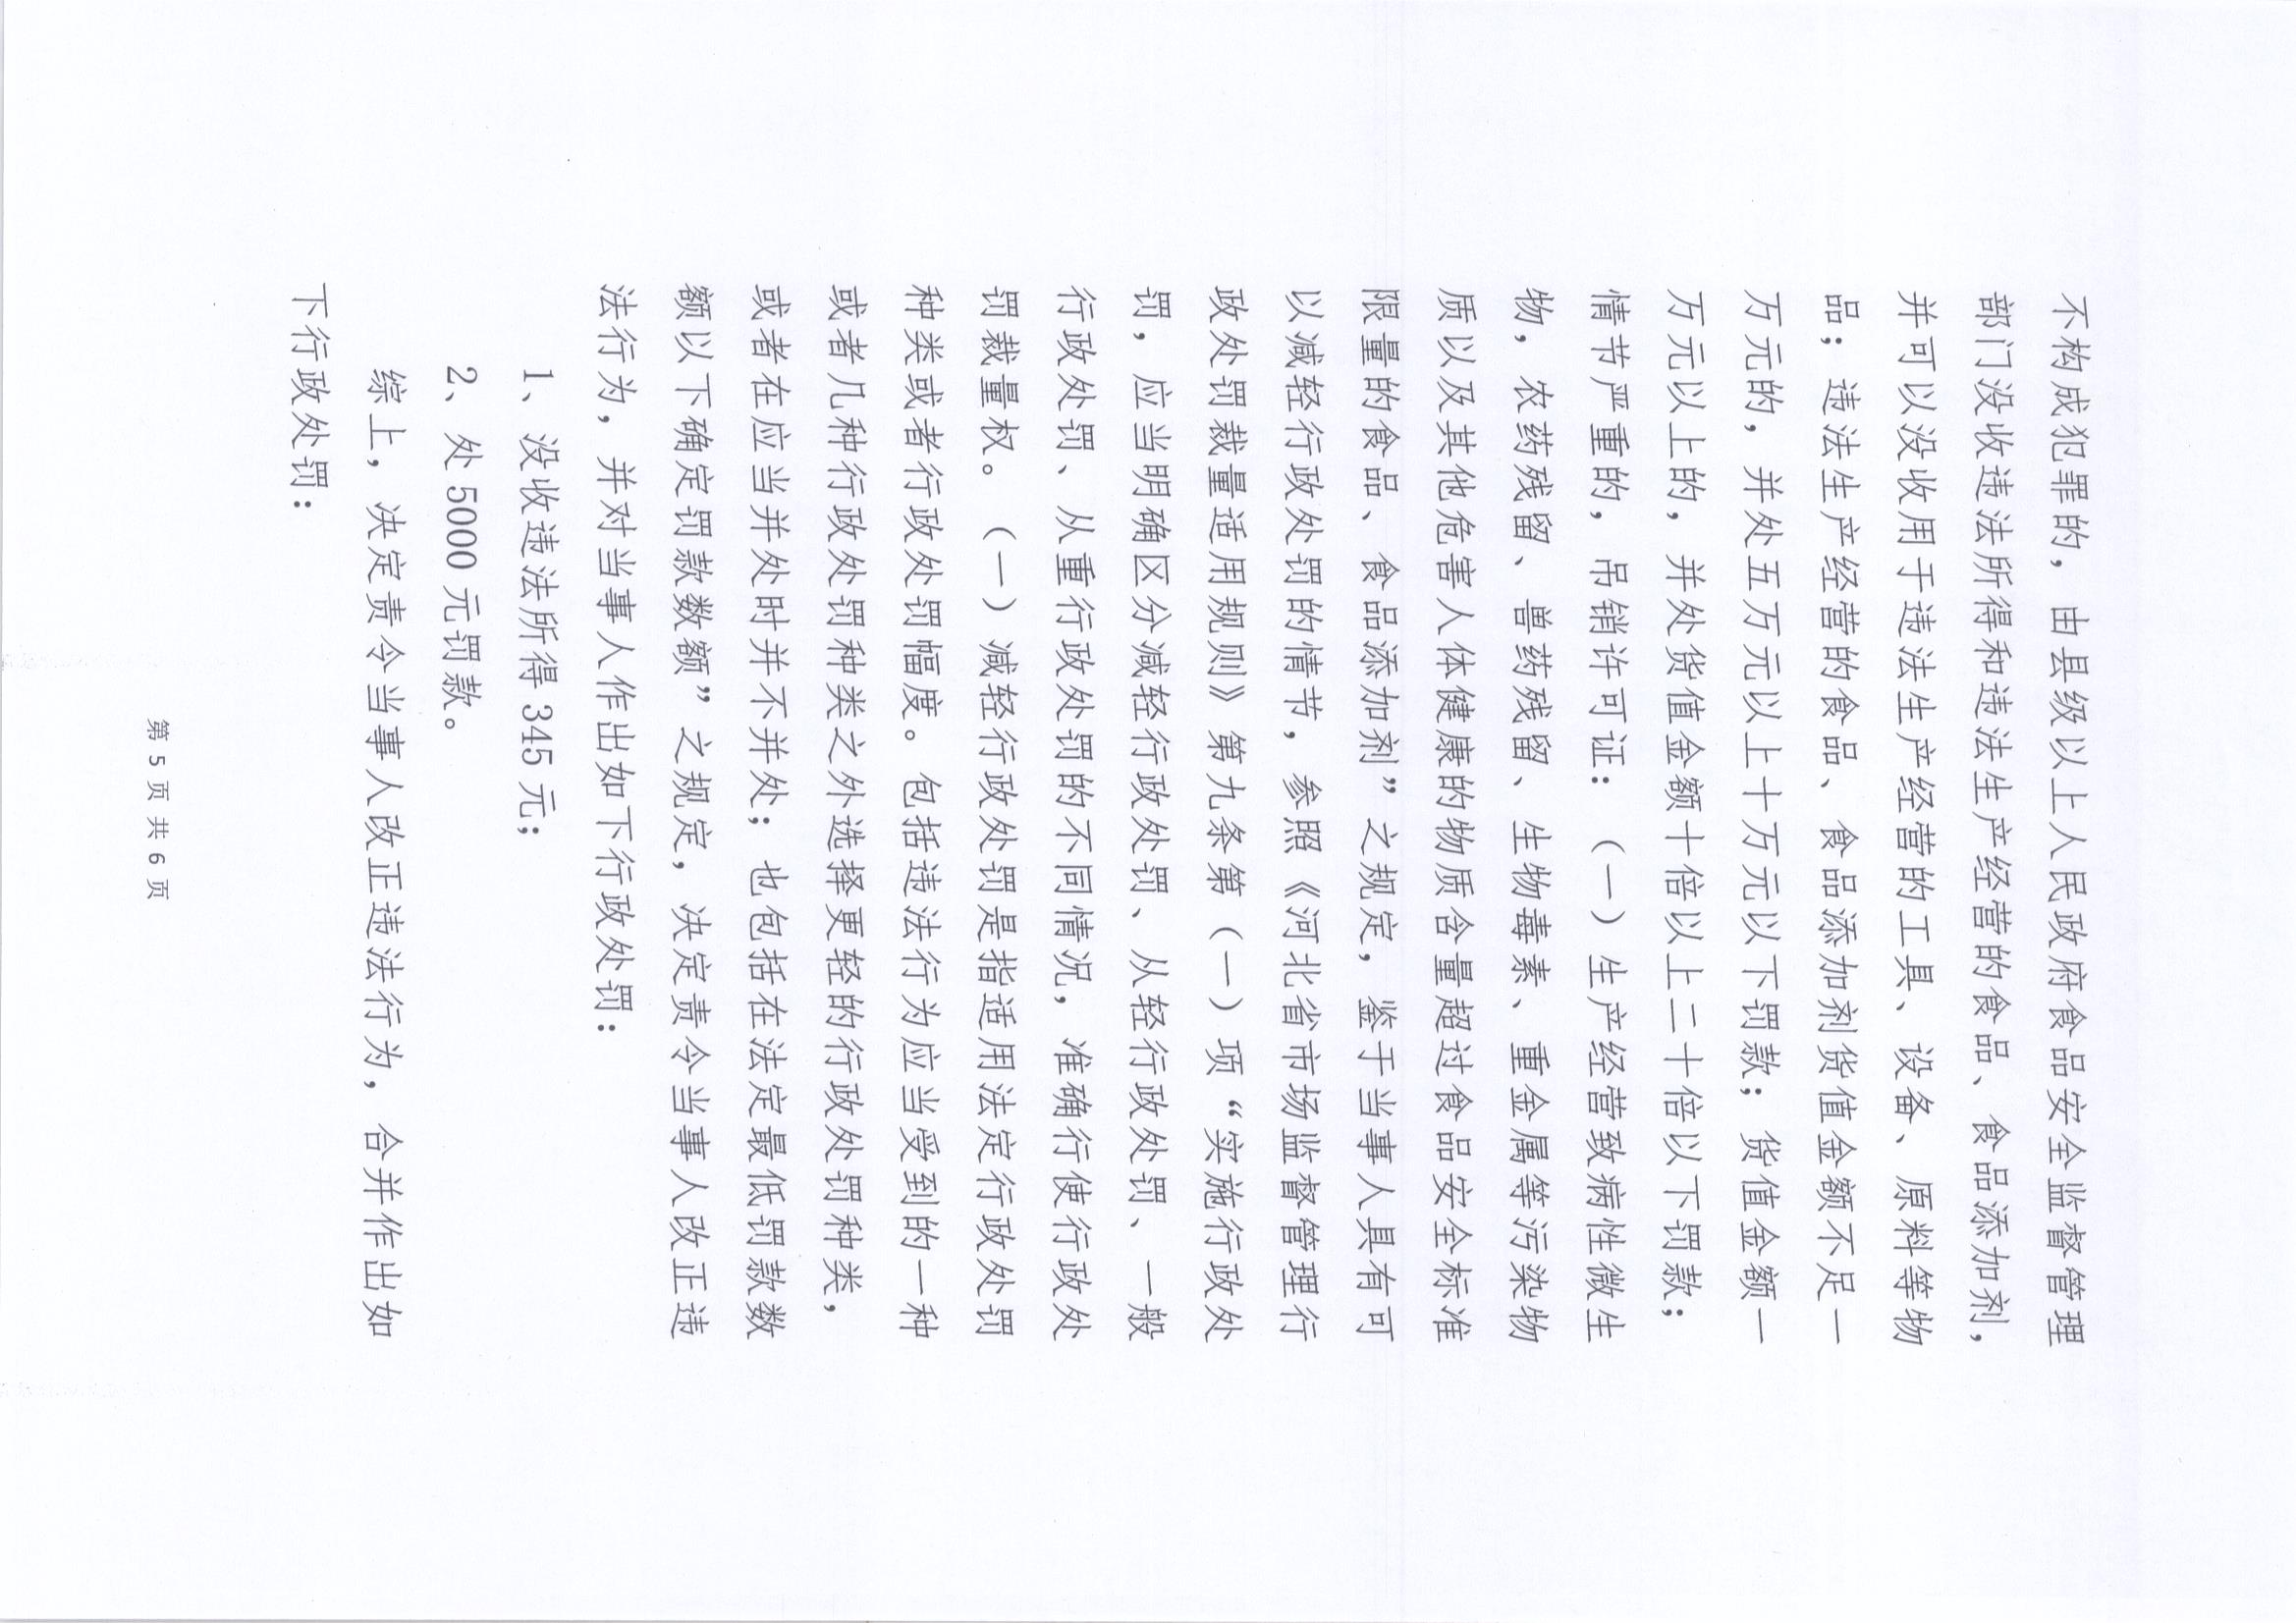 不构成犯罪的，由县级以上人民政府食品安全监督管理
部门没收违法所得和违法生产经营的食品、食品添加剂，
并可以没收用于违法生产经营的工具、设备、原料等物
品；违法生产经营的食品、食品添加剂货值金额不足一
万元的，并处五万元以上十万元以下罚款；货值金额一
万元以上的，并处货值金额十倍以上二十倍以下罚款；
情节严重的，吊销许可证：（一）生产经营致病性微生
物，农药残留、兽药残留、生物毒素、重金属等污染物
质以及其他危害人体健康的物质含量超过食品安全标准
限量的食品、食品添加剂”之规定，鉴于当事人具有可
以减轻行政处罚的情节，参照《河北省市场监督管理行
政处罚裁量适用规则》第九条第（一）项“实施行政处
罚，应当明确区分减轻行政处罚、从轻行政处罚、一般
行政处罚、从重行政处罚的不同情况，准确行使行政处
罚裁量权。（一）减轻行政处罚是指适用法定行政处罚
种类或者行政处罚幅度。包括违法行为应当受到的一种
或者几种行政处罚种类之外选择更轻的行政处罚种类，
或者在应当并处时并不并处；也包括在法定最低罚款数
额以下确定罚款数额”之规定，决定责令当事人改正违
法行为，并对当事人作出如下行政处罚：
1、没收违法所得 345 元；
2、处 5000 元罚款。
综上，决定责令当事人改正违法行为，合并作出如
下行政处罚：
第 5 页 共 6 页